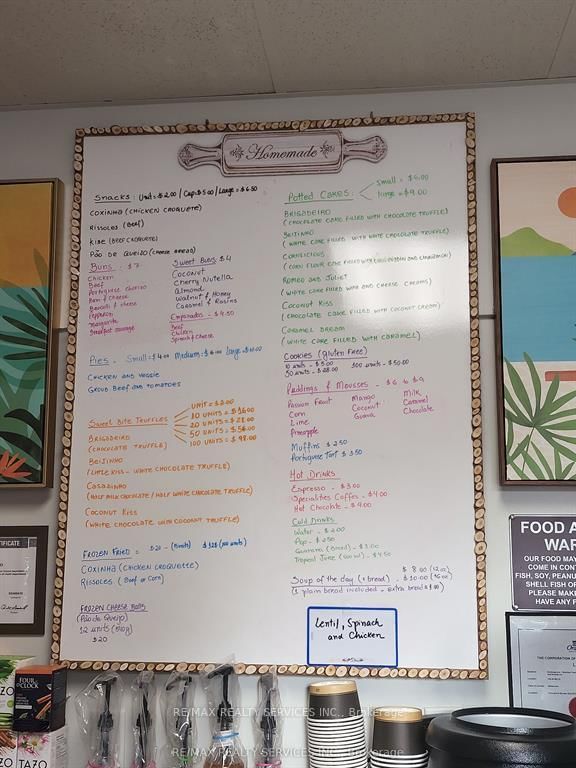 Homemade
Snacks : Unit = $2.00 / Cup = $5.00 / Large = $6.50
COXINHA (CHICKEN CROQUETE)
RISSOLES (Beef)
KIBE (BEEF CROQUETE)
PÃO DE QUEIJO (CHEESE BREAD)
Buns . $7
Chicken
Beef
Portuguese chorizo
Ham & Cheese
Brocolli & cheese
Pepperoni
Margarita
Breakfast sausage
Sweet Buns $4
Coconut
Cherry Nutella
Almond
Walnut & Honey
Caramel & Raisins
Empanadas - $4.50
Beef
Chicken
Spinach & Cheese
Pies - Small = $4.00 Medium = $6.00 Large = $10.00
CHICKEN AND VEGGIE
GROUD BEEF AND TOMATOES
Sweet Bite Truffles
UNIT = $2.00
10 UNITS = $16.00
20 UNITS = $28.00
50 UNITS = $54.00
100 UNITS = $98.00
BRIGADEIRO
(CHOCOLATE TRUFFLE)
BEIJINHO
(LITTLE KISS - WHITE CHOCOLATE TRUFFLE)
CASADINHO
(HALF MILK CHOCOLATE / HALF WHITE CHOCOLATE TRUFFLE)
COCONUT KISS
(WHITE CHOCOLATE WITH COCONUT TRUFFLE)
FROZEN FRIED =
COXINHA (CHICKEN CROQUETTE)
RISSOLES (Beef or Corn)
FROZEN CHEESE BALLS
(Pão de Queijo)
12 units (510g)
$20
Potted Cakes:
small = $6.00
large = $9.00
BRIGADEIRO
(CHOCOLATE CAKE FILLED WITH CHOCOLATE TRUFFLE)
BEIJINHO
(WHITE CAKE FILLED WITH WHITE CHOCOLATE TRUFFLE)
CORNLICIOUS
(CORN FLOUR CAKE FILLED WITH CORN PUDDIN AND CINNAMON)
ROMEO AND JULIET
(WHITE CAKE FILLED WITH AND CHEESE CREAMS)
COCONUT KISS
(CHOCOLATE CAKE FILLED WITH COCONUT CREAM)
CARAMEL DREAM
(WHITE CAKE FILLED WITH CARAMEL)
COOKIES (Gluten Free)
10 units - $5.00 100 units - $50.00
50 units - $28.00
Puddings & Mousses - $6 & $9
Passion Fruit Mango Milk
Corn Coconut Caramel
Lime Guava Chocolate
Pineapple
Muffins $2.50
Portuguese Tart $3.50
Hot Drinks
Espresso - $3.00
Specialities Coffes - $4.00
Hot Chocolate - $4.00
Cold Drinks
Water - $2.00
Pop - $2.50
Guarana (Brazil) - $3.00
Tropical Juice - $4.50
Soup of the day (+ bread) - $8.00 (12oz)
$10.00 (16oz)
(1 plain bread included - extra bread $1.00)
Lentil, Spinach
and Chicken
CERTIFICATE
FOOD A
WAR
OUR FOOD MAY
COME IN CONT
FISH, SOY, PEANU
SHELL FISH OR
PLEASE MAKE
HAVE ANY F
THE CORPORATION OF
FOUR
O'CLOCK
ZO
ZO
TAZO
RE/MAX REALTY SERVICES INC., Brokerage
RE/MAX REALTY SERVICES INC., Brokerage